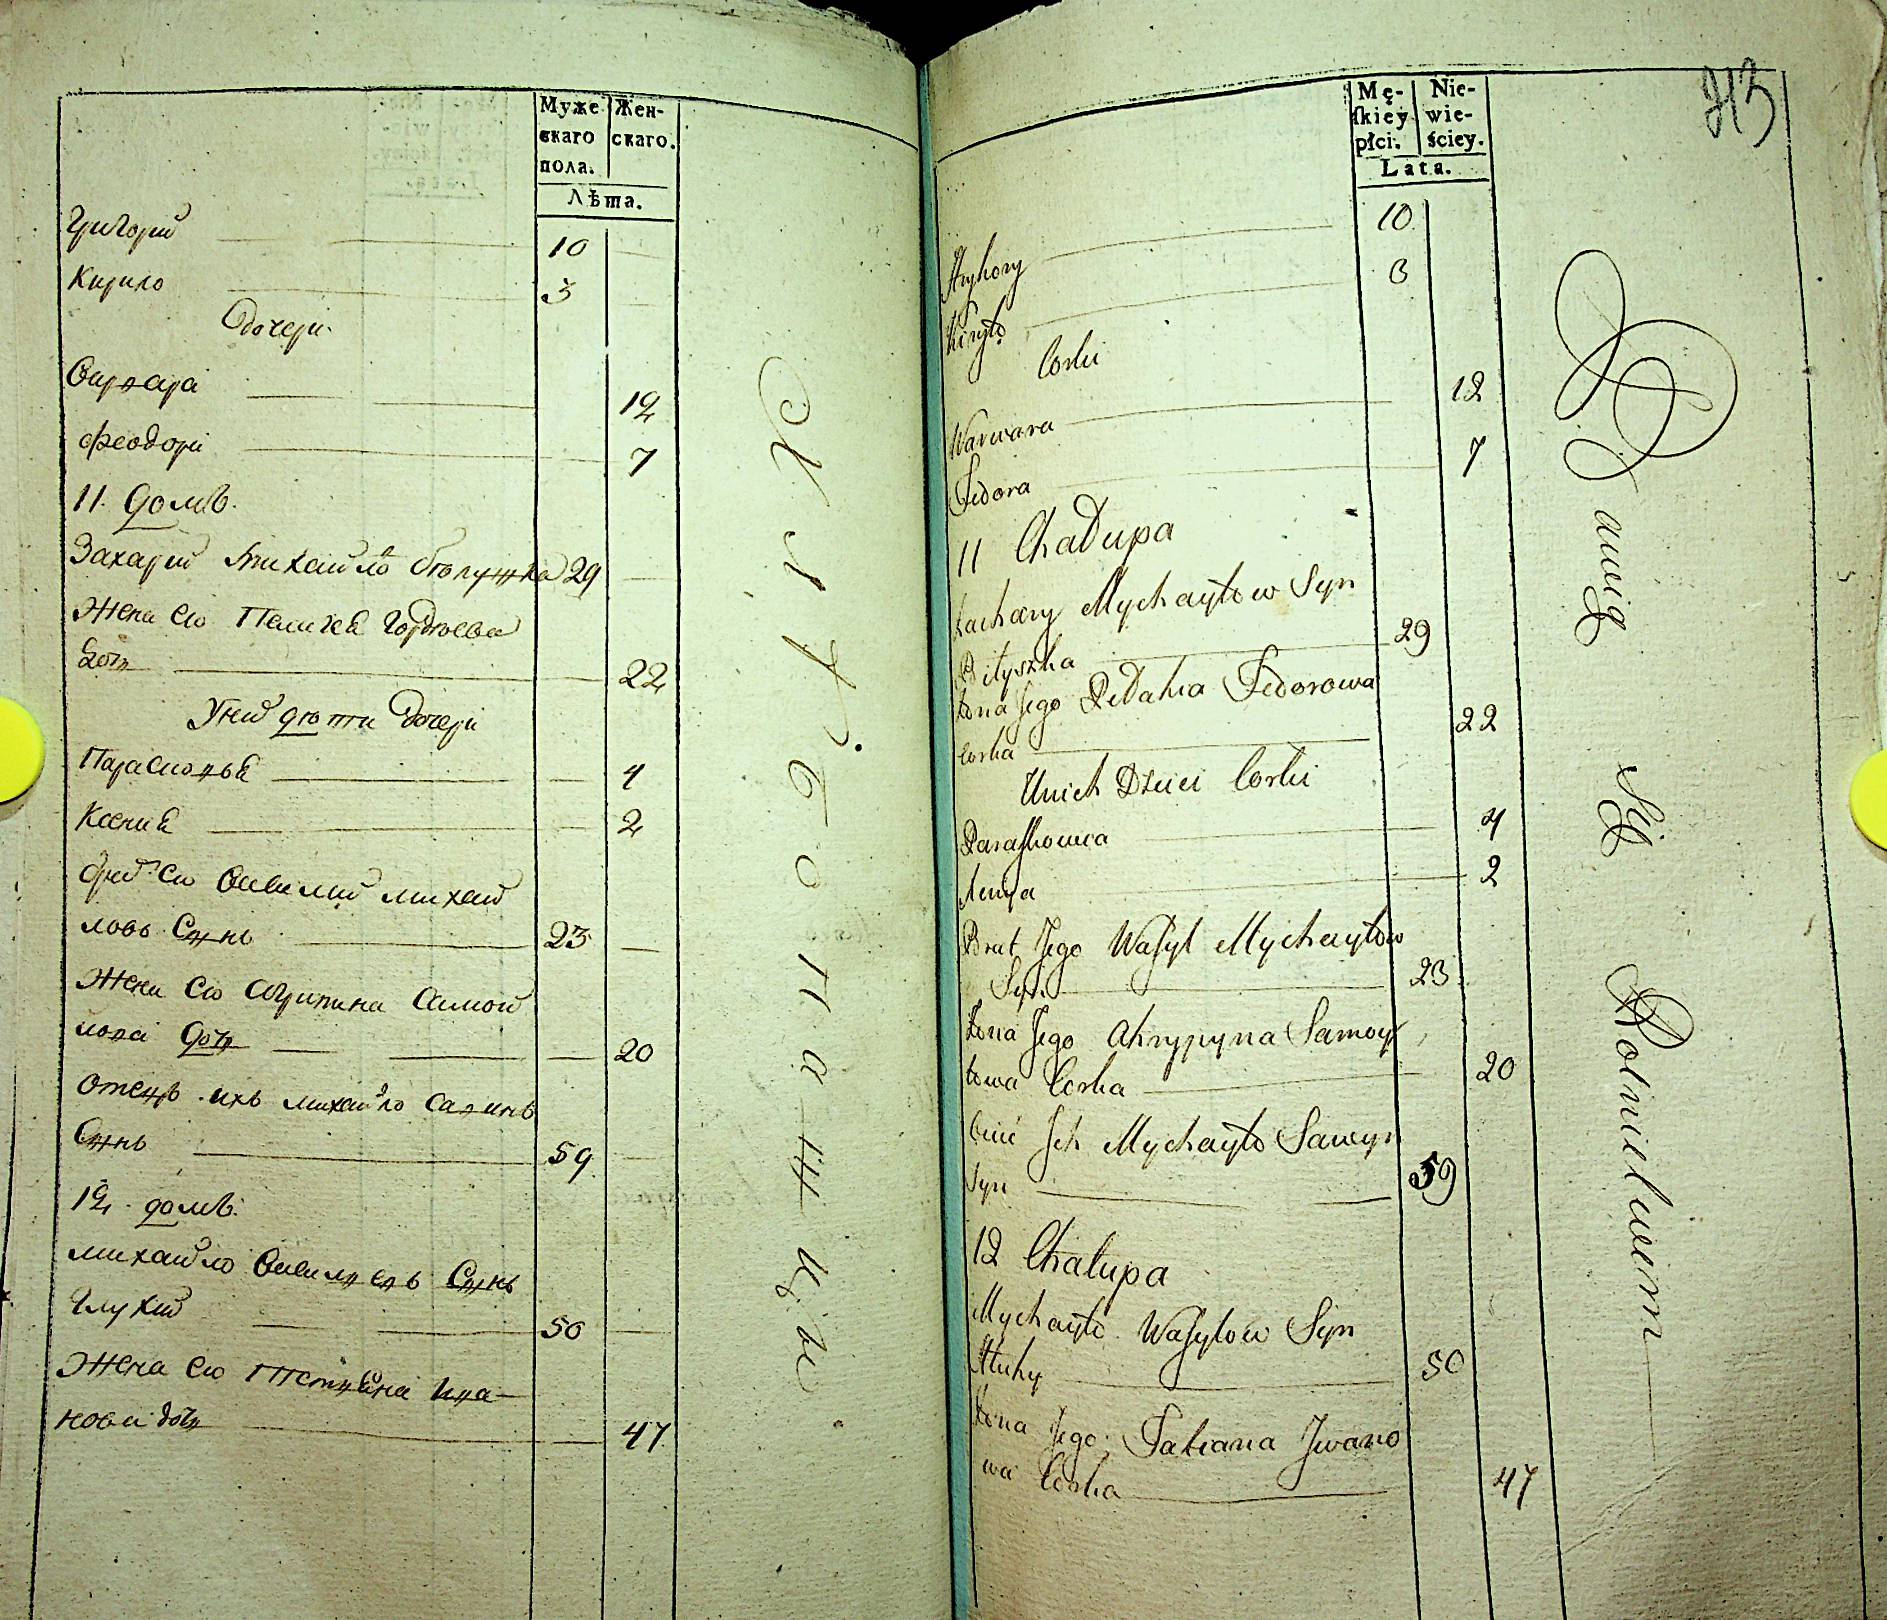 Муже
скаго
пола.
Жен-
скаго.
Лѣта.
Григорий 10
Кирило 3
дочери
Варвара 12
Феодора 7
11. домъ.
Захарий Михайло 29
Жена его Пелагѣя
дочь 22
У них дѣти дочери
Парасковѣя 4
Ксения 2
Братъ его Василий Михай
ловъ Сынъ 23
Жена его Агрипина Самой
лова дочь 20
Отецъ ихъ Михайло Савинъ
Сынъ 59
12. домъ.
Михайло Васильевъ Сынъ
Глухий 50
Жена его Татьяна Ива-
нова дочь 47
Mę-
skiey
płci.
Nie-
wie-
ściey.
Lata.
213
Hryhory 10
Kiryło 3
Corki
Warwara 12
Fedora 7
11 Chałupa
Zachary Mychayłow Syn
29
Żona Jego Pełahia Fedorowa
Corka 22
U nich Dzieci Corki
Paraskowia 4
2
Brat Jego Wasyl Mychayłow
Syn 23
Żona Jego Ahrypyna Samoy
łowa Corka 20
Ociec Jch Mychayło Sawyn
Syn 59
12 Chałupa
Mychayło Wasylow Syn
Hłuhy 50
Żona Jego Tatiana Jwano
wa Corka 47